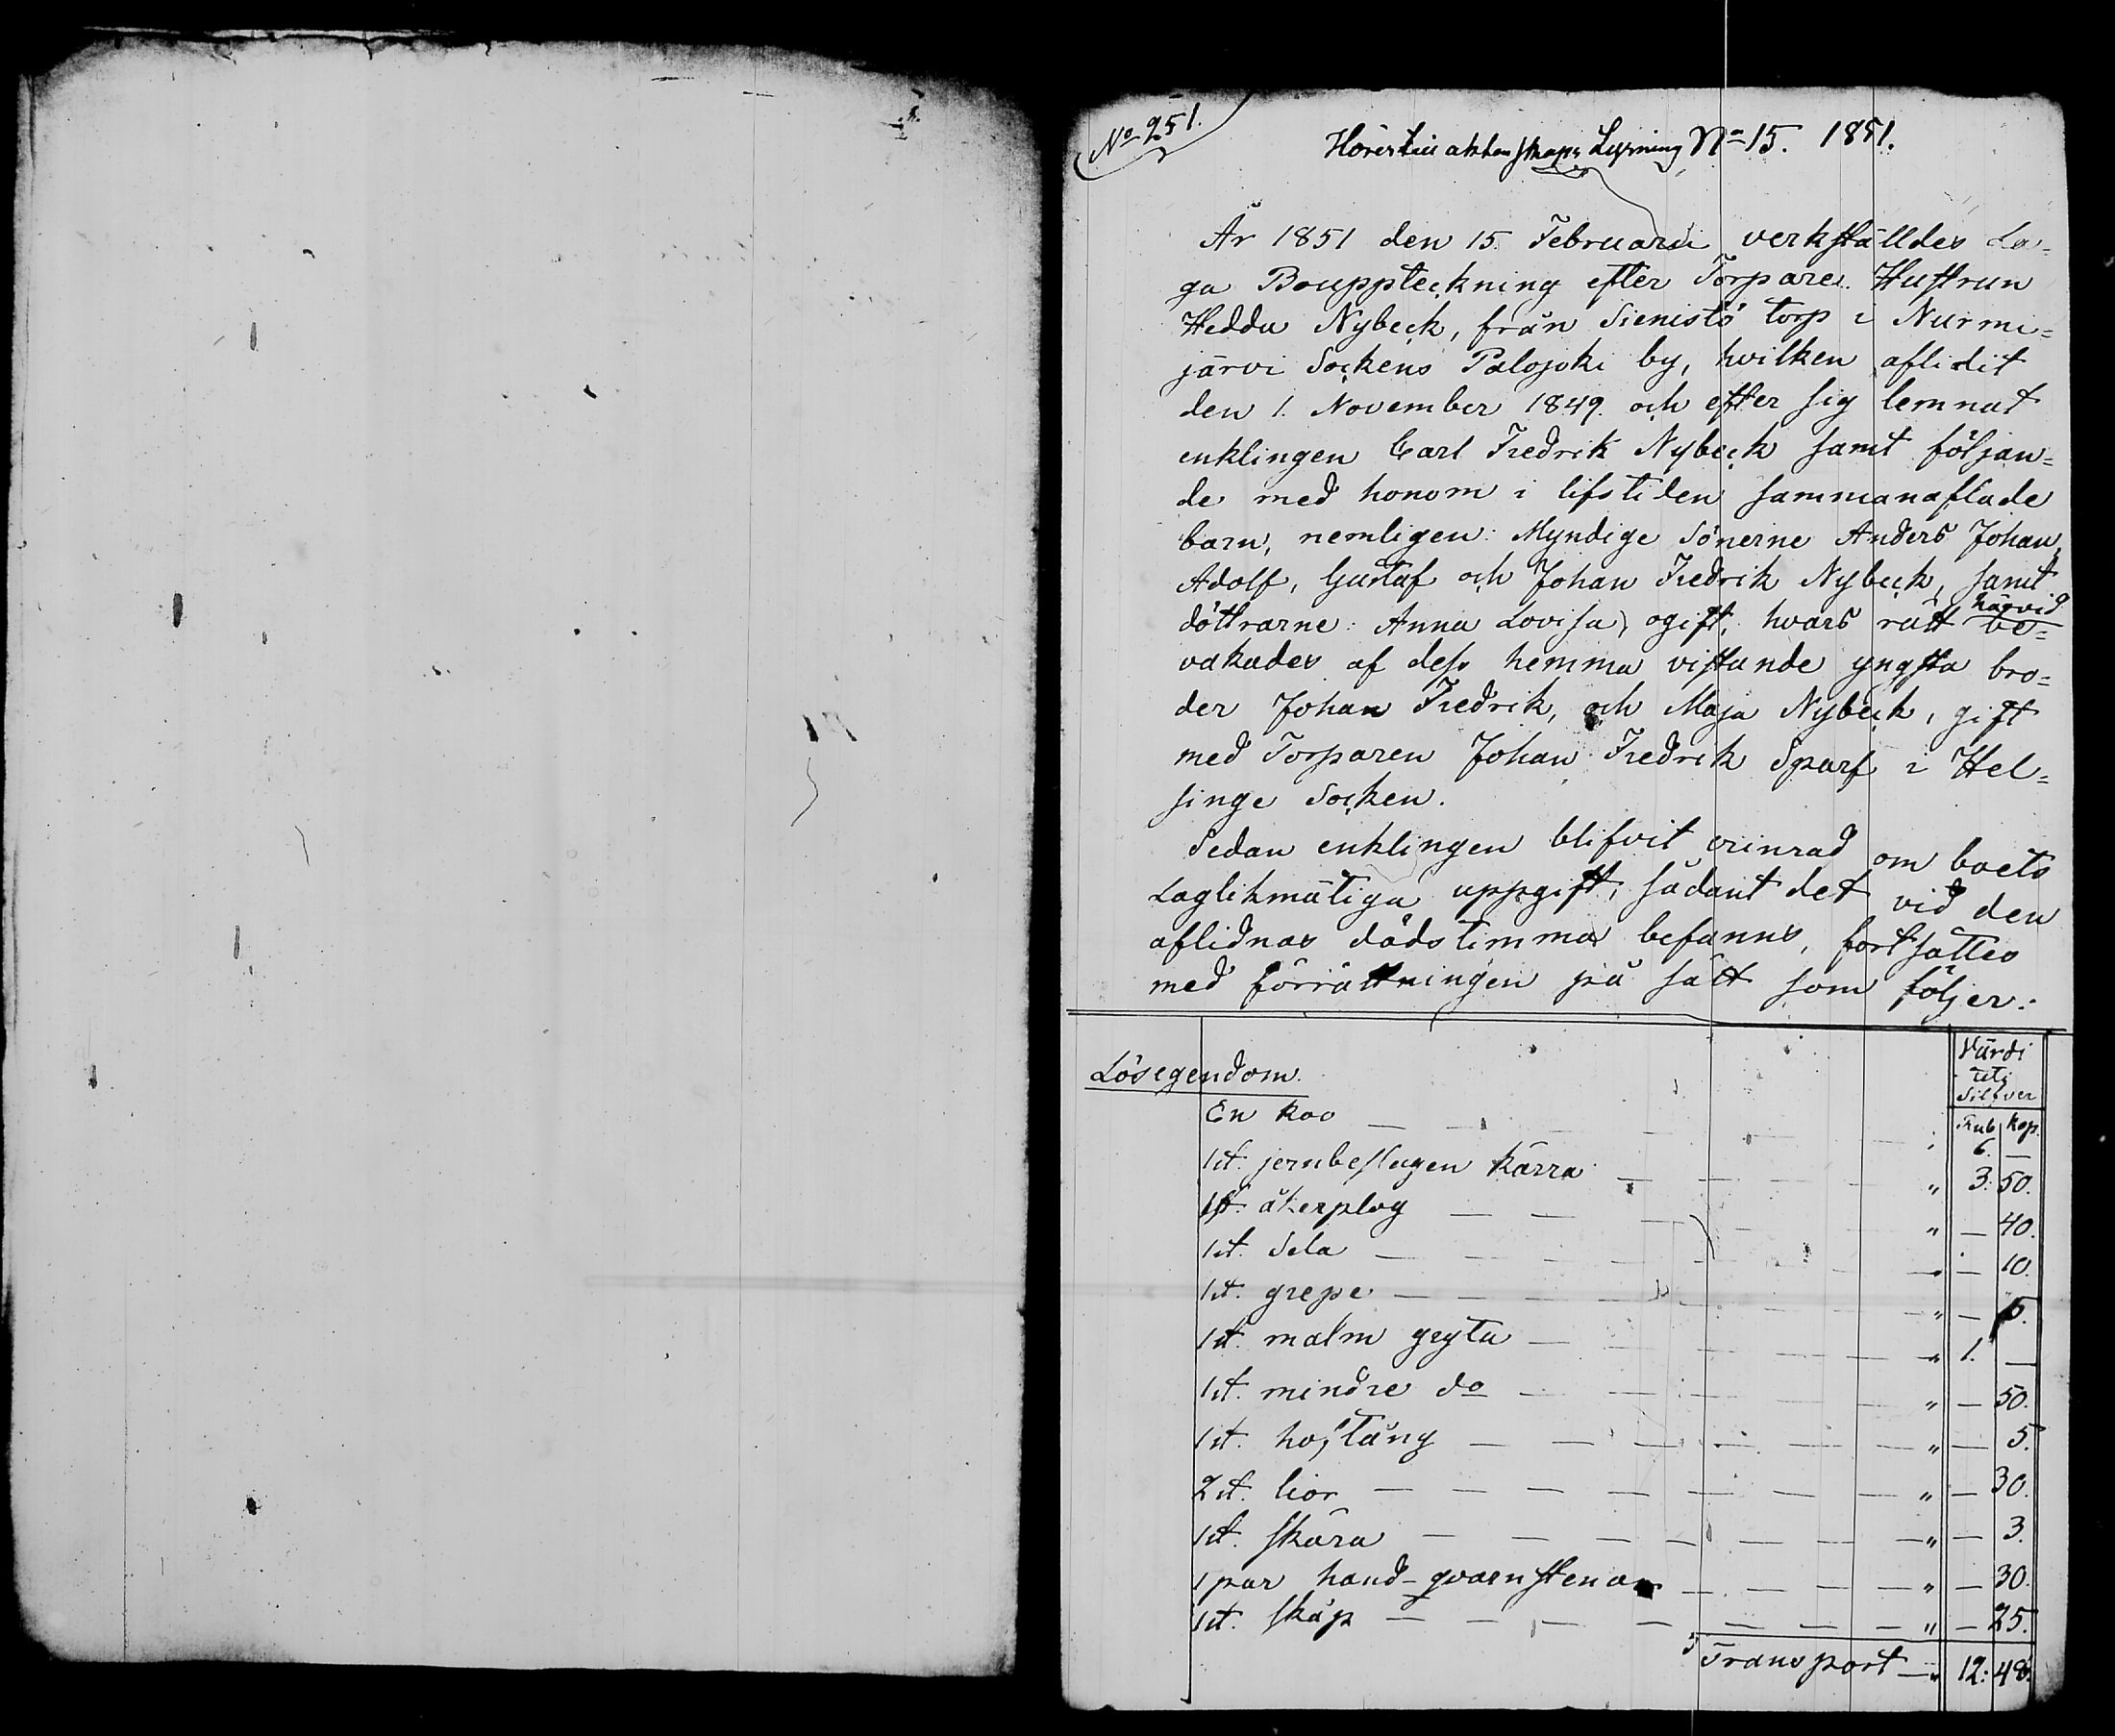 No 251.
Hörer till aktenskaps Lysning No 15. 1851.
År 1851 den 15 Februarii verkställdes La=
ga Bouppteckning efter Torpare Hustrun
Hedda Nybeck, från Sienistö torp i Nurmi=
järvi Sockens Palojoki by, hvilken aflidit
den 1. November 1849. och efter sig lemnat
enklingen Carl Fredrik Nybeck samt följan=
de med honom i lifstiden sammanaflade
barn, nemligen: Myndige Sönerne Anders Johan,
Adolf, Gustaf och Johan Fredrik Nybeck, samt
döttrarne: Anna Lovisa, ogift, hvars rätt härvid be=
vakades af dess hemma vistande yngsta bro=
der Johan Fredrik, och Maja Nybeck, gift
med Torparen Johan Fredrik Sparf i Hel=
singe Socken.
Sedan enklingen blifvit erinrad om boets
Laglikmätiga uppgift, sådant det vid den
aflidnas dödstimma befanns, fortsattes
med förrättningen på sätt som följer:
Värdi
uti
Silfver
Lösegendom.
Rub. kop.
En koo — — — " 6. —
1 st. jernbeslagen kärra — — — " 3. 50.
1 st. åkerplog — — — " — 40.
1 st. Sela — — — " — 10.
1 st. grepe — — — " — 5.
1 st. malm gryta — — — " 1. —
1 st. mindre do — — — " — 50.
1 st. hoftång — — — " — 5.
2 st. lior — — — " — 30.
1 st. skära — — — " — 3.
1 par hand-qvarnstenar — — — " — 30.
1 st. skåp — — — " — 25.
Transport — " 12: 48.